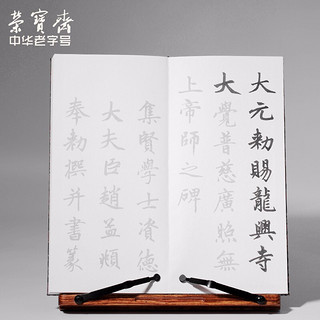 榮寶齋
中华老字号
大元勅賜龍興寺
大覺普慈廣照無
上帝師之碑
集賢學士資德
大夫臣趙孟頫
奉勅撰并書篆